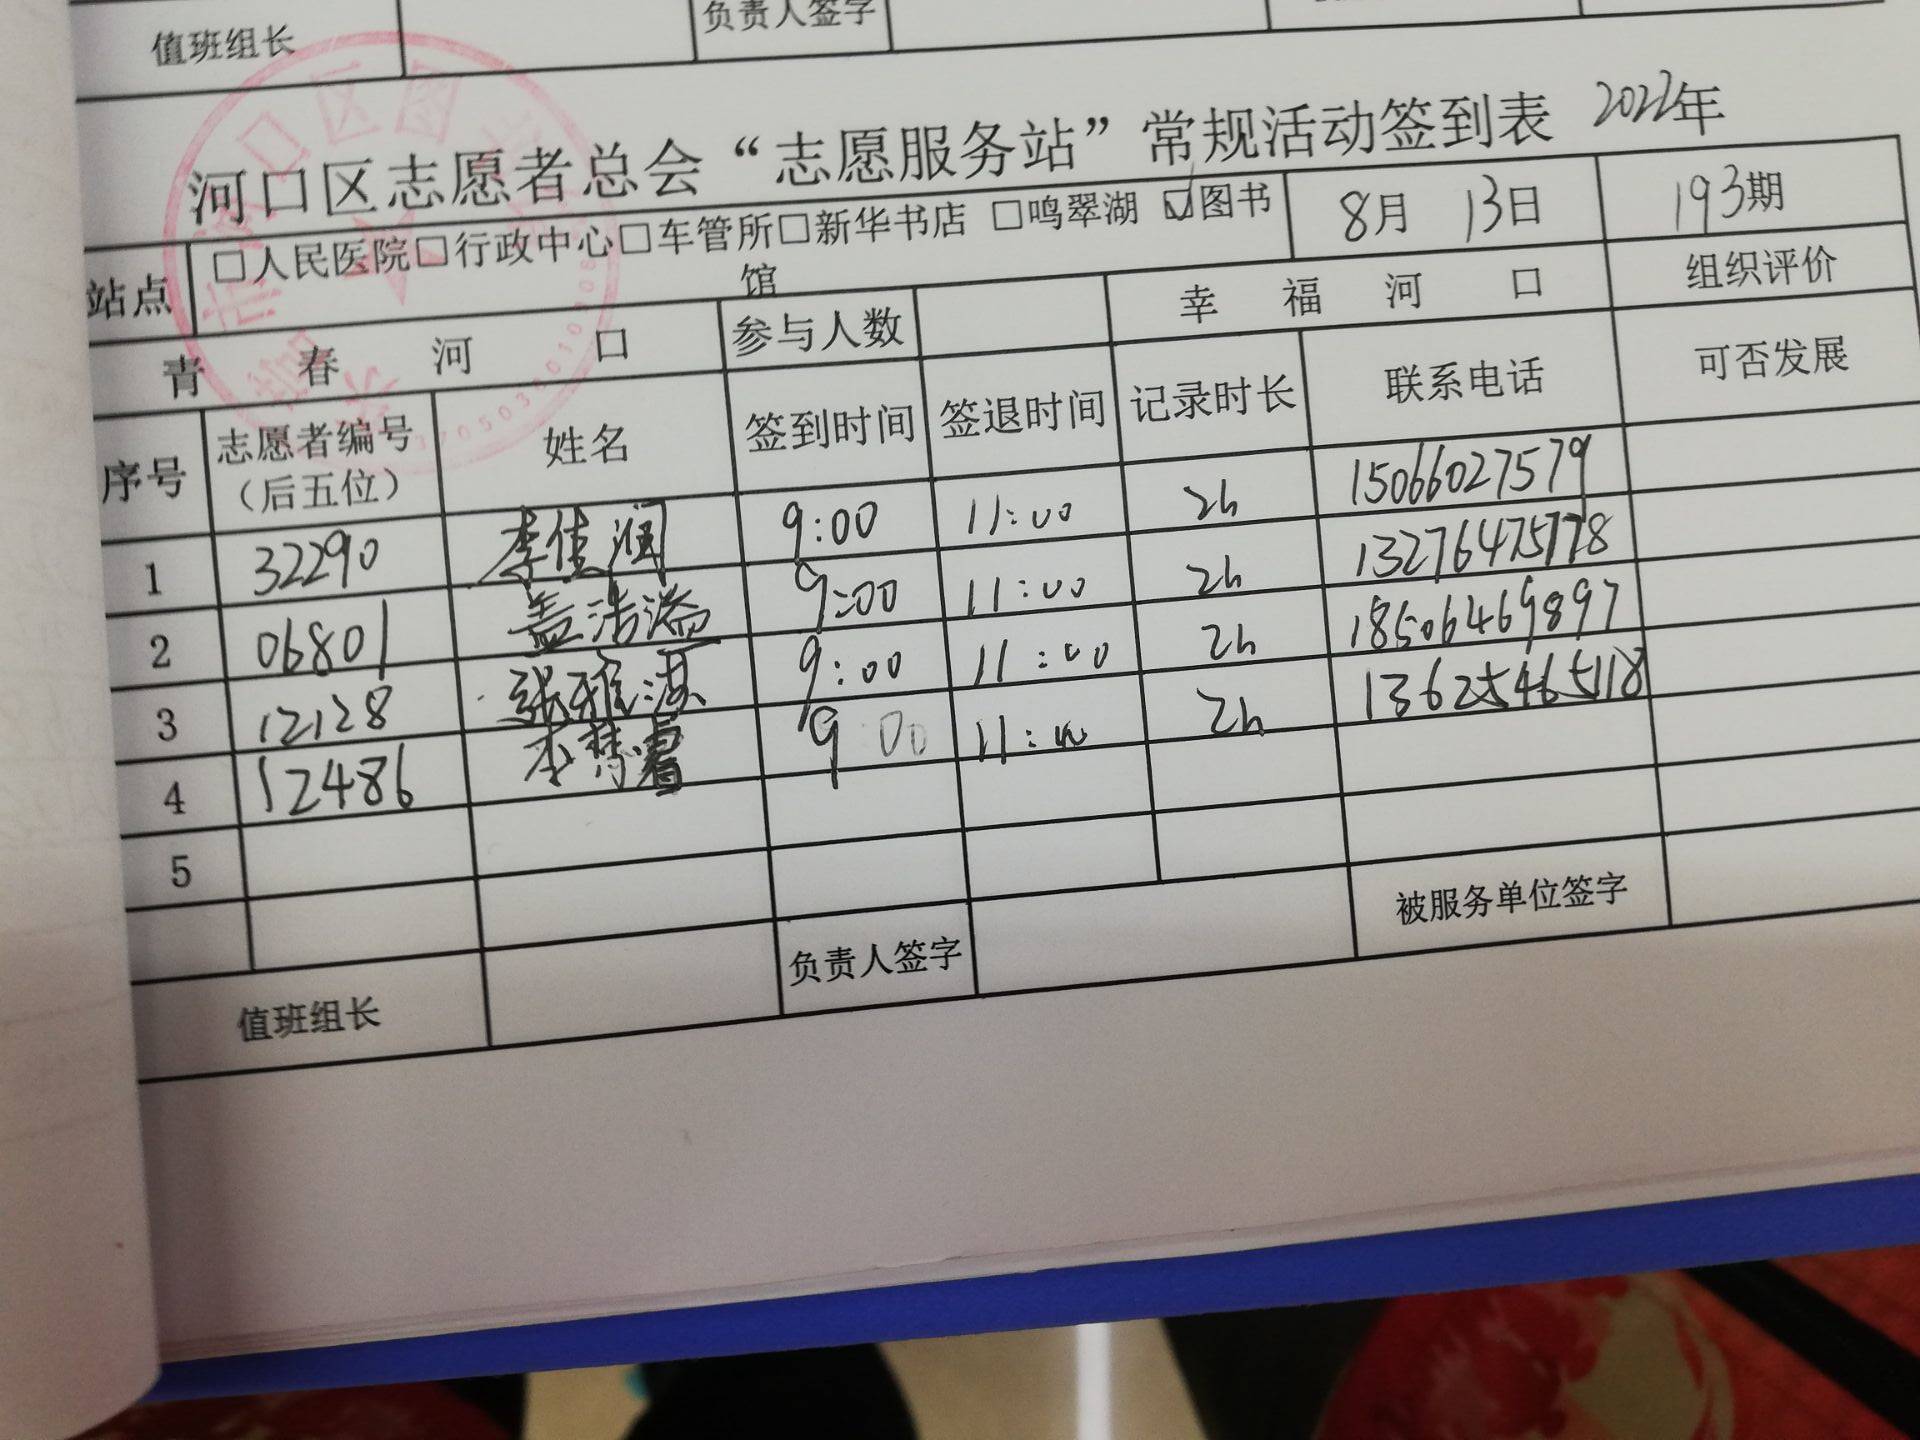 值班组长 负责人签字
河口区志愿者总会“志愿服务站”常规活动签到表 2022年
站点 □人民医院□行政中心□车管所□新华书店 □鸣翠湖 ☑图书馆 8月 13日 193期
青春河口 参与人数 幸福河口 组织评价
序号 志愿者编号（后五位） 姓名 签到时间 签退时间 记录时长 联系电话 可否发展
1 32290 李佳润 9:00 11:00 2h 15066027579
2 06801 盖浩溢 9:00 11:00 2h 13276475778
3 12128 张雅淇 9:00 11:00 2h 18506469897
4 12486 李梦睿 9 00 11:00 2h 13625465118
5
值班组长 负责人签字 被服务单位签字